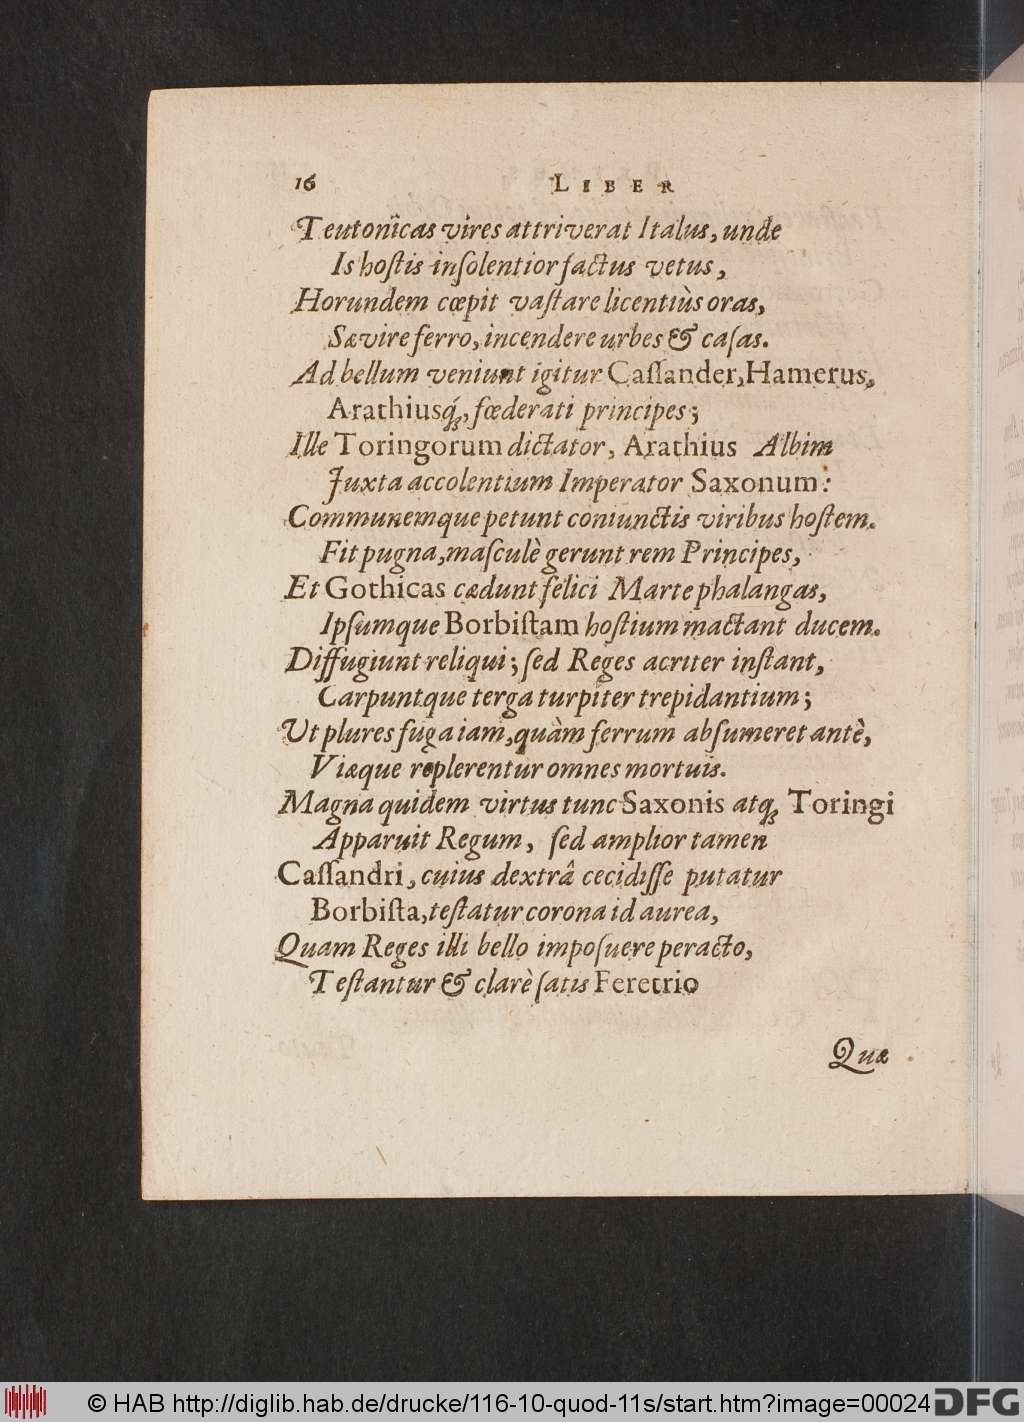 16 LIBER
Teutonicas vires attriverat Italus, unde
Is hoſtis inſolentior factus vetus,
Horundem cœpit vaſtare licentiùs oras,
Sævire ferro, incendere urbes & caſas.
Ad bellum veniunt igitur Caſſander, Hamerus,
Arathiusq́;, fœderati principes;
Ille Toringorum dictator, Arathius Albim
Juxta accolentium Imperator Saxonum:
Communemque petunt coniunctis viribus hoſtem.
Fit pugna, maſculè gerunt rem Principes,
Et Gothicas cædunt felici Marte phalangas,
Ipſumque Borbiſtam hoſtium mactant ducem.
Diffugiunt reliqui; ſed Reges acriter inſtant,
Carpuntque terga turpiter trepidantium;
Ut plures fuga iam, quàm ferrum abſumeret antè,
Viæque replerentur omnes mortuis.
Magna quidem virtus tunc Saxonis atq; Toringi
Apparuit Regum, ſed amplior tamen
Caſſandri, cuius dextrâ cecidiſſe putatur
Borbiſta, teſtatur corona id aurea,
Quam Reges illi bello impoſuere peracto,
Teſtantur & clarè ſatis Feretrio
Quæ
© HAB http://diglib.hab.de/drucke/116-10-quod-11s/start.htm?image=00024 DFG